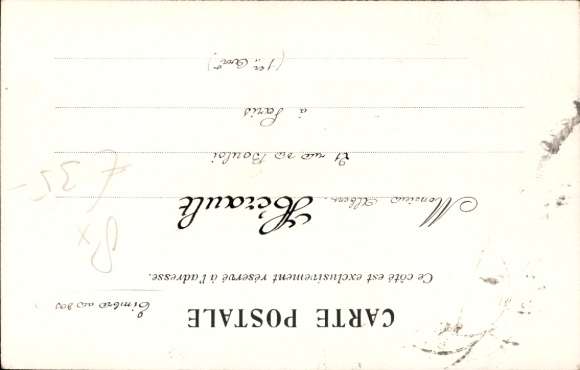 CARTE POSTALE
Timbre au dos
Ce côté est exclusivement réservé à l'adresse.
Monsieur Albert Hérault
21 rue du Bouloi
à Paris
(1er Arrt)
€ 35-